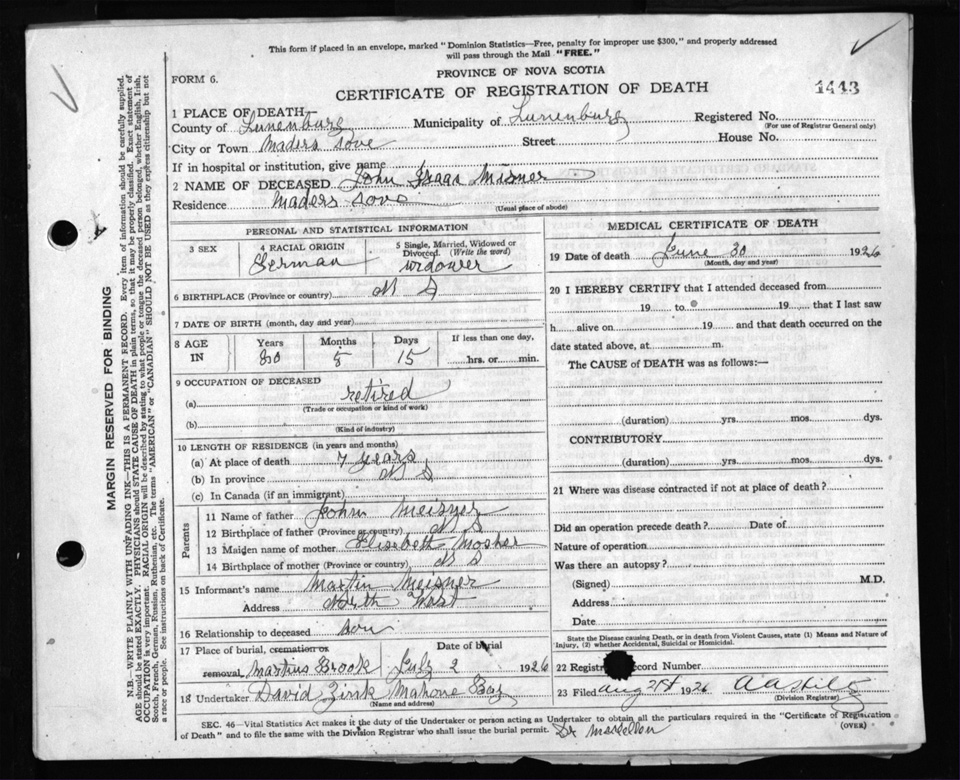 This form if placed in an envelope, marked "Dominion Statistics—Free, penalty for improper use $300," and properly addressed
will pass through the Mail "FREE."
FORM 6.
PROVINCE OF NOVA SCOTIA
CERTIFICATE OF REGISTRATION OF DEATH
1443
1 PLACE OF DEATH—
County of Lunenburg Municipality of Lunenburg Registered No.
(For use of Registrar General only)
City or Town Maders Cove Street House No.
If in hospital or institution, give name
2 NAME OF DECEASED John Misner
Residence Maders Cove
(Usual place of abode)
PERSONAL AND STATISTICAL INFORMATION
3 SEX 4 RACIAL ORIGIN 5 Single, Married, Widowed or Divorced. (Write the word)
German widower
6 BIRTHPLACE (Province or country) N S
7 DATE OF BIRTH (month, day and year)
8 AGE IN Years Months Days If less than one day,
80 8 15 hrs. or min.
9 OCCUPATION OF DECEASED
(a) retired
(Trade or occupation or kind of work)
(b)
(Kind of industry)
10 LENGTH OF RESIDENCE (in years and months)
(a) At place of death 7 years
(b) In province N S
(c) In Canada (if an immigrant)
Parents
11 Name of father John Meisner
12 Birthplace of father (Province or country) N S
13 Maiden name of mother Elisabeth Mosher
14 Birthplace of mother (Province or country) N S
15 Informant's name Martin Meisner
Address North West
16 Relationship to deceased son
17 Place of burial, cremation or Date of burial
removal, Martins Brook July 2 1926
18 Undertaker David Zink Mahone Bay
(Name and address)
MEDICAL CERTIFICATE OF DEATH
19 Date of death June 30 1926
(Month, day and year)
20 I HEREBY CERTIFY that I attended deceased from
19 to 19 that I last saw
h alive on 19 and that death occurred on the
date stated above, at m.
The CAUSE of DEATH was as follows:—
(duration) yrs. mos. dys.
CONTRIBUTORY
(duration) yrs. mos. dys.
21 Where was disease contracted if not at place of death?
Did an operation precede death? Date of
Nature of operation
Was there an autopsy?
(Signed) M.D.
Address
Date
State the Disease causing Death, or in death from Violent Causes, state (1) Means and Nature of
Injury, (2) whether Accidental, Suicidal or Homicidal.
22 Regist Record Number
23 Filed Aug 21st 1926
(Division Registrar)
SEC. 46—Vital Statistics Act makes it the duty of the Undertaker or person acting as Undertaker to obtain all the particulars required in the "Certificate of Registration
of Death" and to file the same with the Division Registrar who shall issue the burial permit. Dr
(OVER)
MARGIN RESERVED FOR BINDING
N.B.—WRITE PLAINLY WITH UNFADING INK—THIS IS A PERMANENT RECORD. Every item of information should be carefully supplied.
AGE should be stated EXACTLY. PHYSICIANS should STATE CAUSE OF DEATH in plain terms, so that it may be properly classified. Exact statement of
OCCUPATION is very important. RACIAL ORIGIN will be described by stating to what people or tongue the deceased person belonged, whether English, Irish,
Scotch, French, German, Russian, Ruthenian, etc. The terms "AMERICAN" or "CANADIAN" SHOULD NOT BE USED as they express citizenship but not
a race or people. See instructions on back of Certificate.